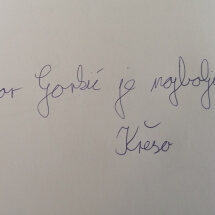 or Goršić je najbolji
Krešo